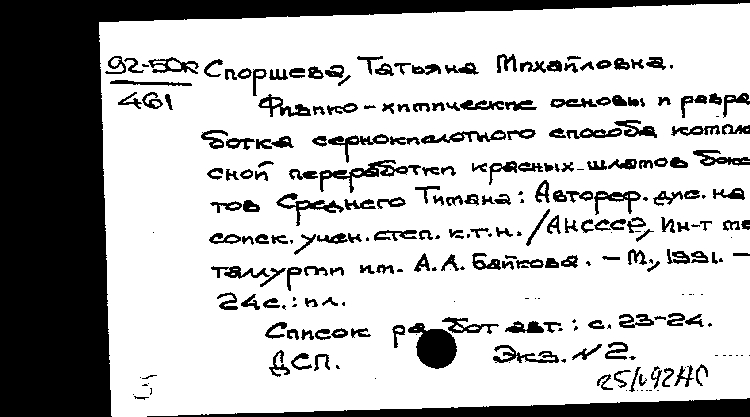 92-50к Споршева, Татьяна Михайловна.
461
Физико-химические основы и разра
ботка сернокислотного способа компле
сной переработки красных шламов бокс
тов Среднего Тимана: Автореф. дис. на
соиск. учен. степ. к.т.н. / АН СССР, Ин-т ме
таллургии им. А.А. Байкова. - М., 1991. -
24с.: ил.
Список работ авт.: с. 23-24.
ДСП. Экз. N 2.
5